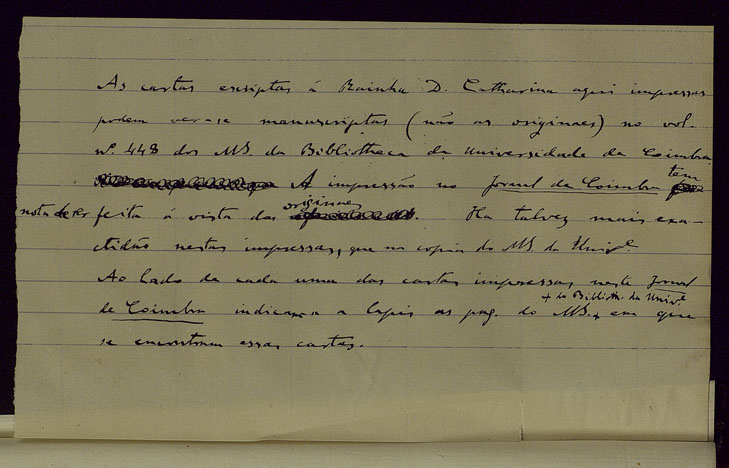 As cartas escriptas á Rainha D. Catharina aqui impressas
podem ver-se manuscriptas (não as originaes) no vol.
nº. 448 dos MS. da Bibliotheca da Universidade de Coimbra
A impressão no Jornal de Coimbra tem
nota de ser feita á vista das originaes. Ha talvez mais exa-
ctidão nestas impressas, que na copia do MS da Univ.e
Ao lado de cada uma das cartas impressas neste Jornal
de Coimbra indicam-se a lapis as pag. do MS. + da Biblioth. da Univ.e em que
se encontram essas cartas.